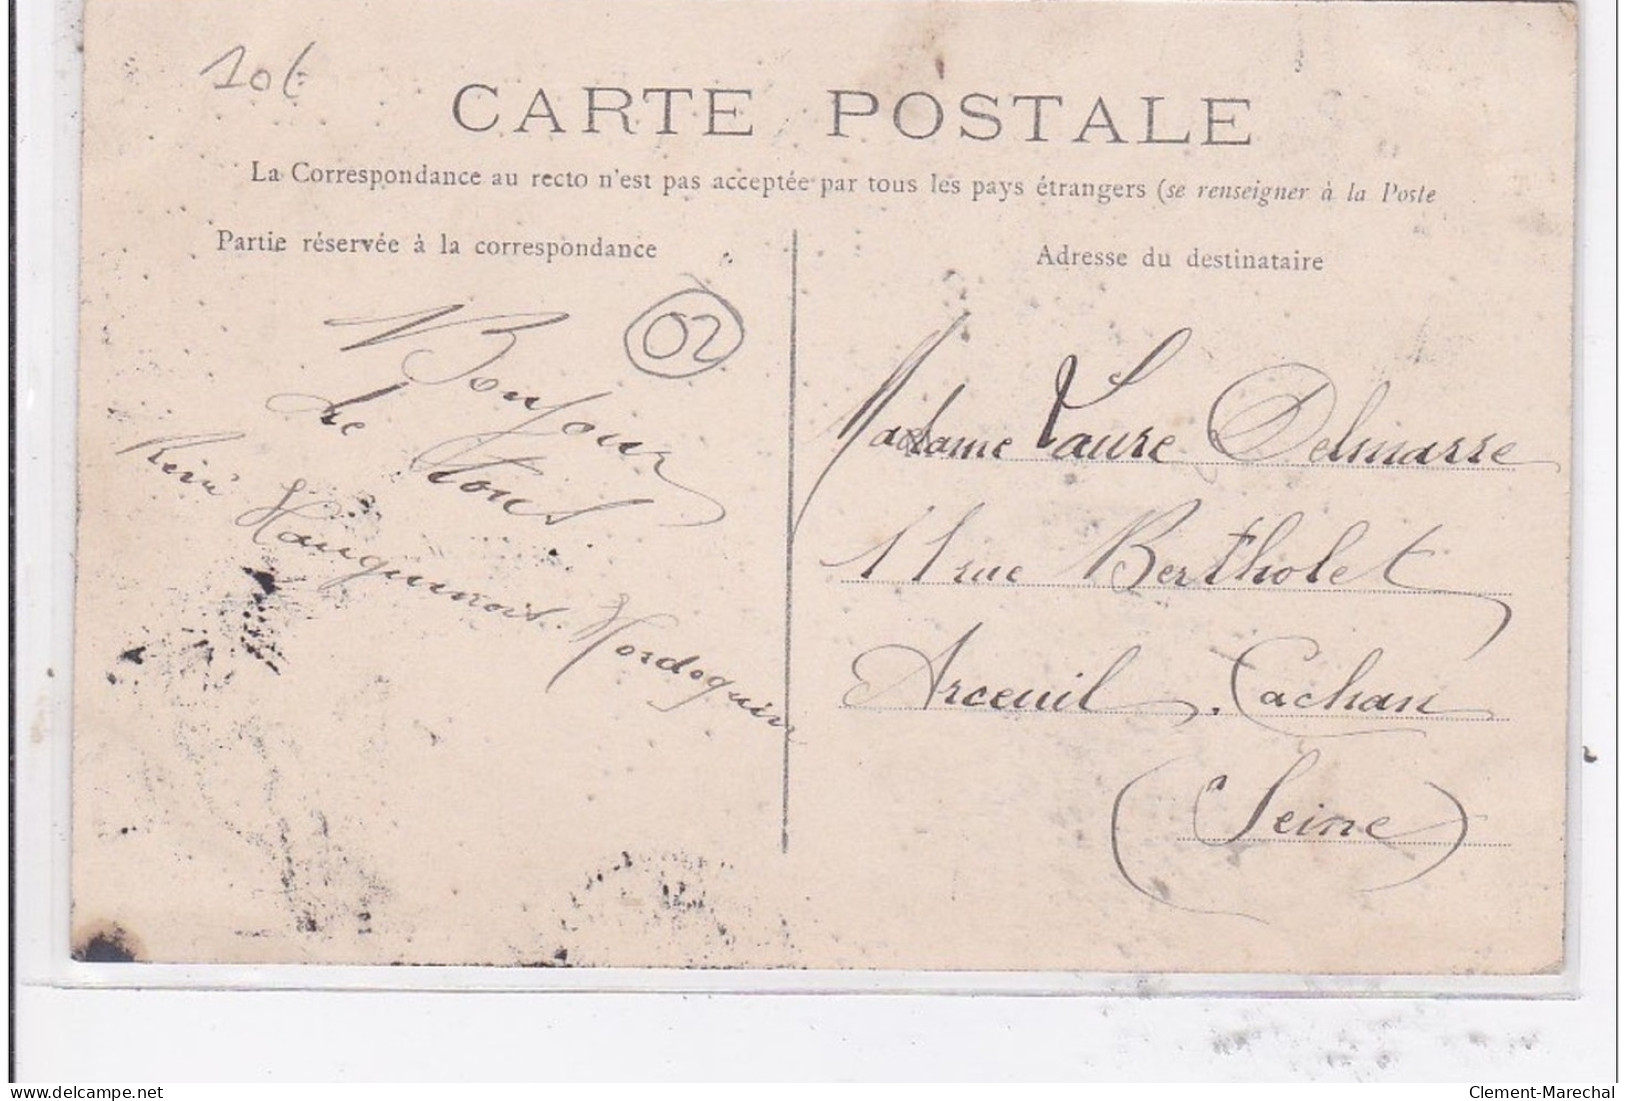 10€
CARTE POSTALE
La Correspondance au recto n'est pas acceptée par tous les pays étrangers (se renseigner à la Poste
Partie réservée à la correspondance
Adresse du destinataire
02
Bonjour
de
tous
René
Madame Laure Delmarre
11 rue Berthollet
Arceuil. Cachan
(Seine)
www.delcampe.net
Clement-Marechal